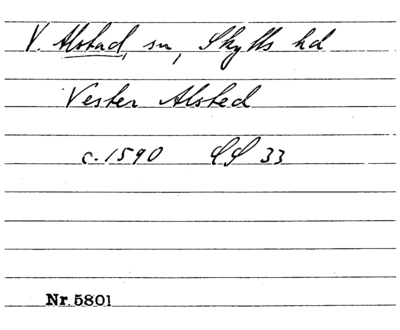 V. Alstad, sn, Skytts hd
Vester Alsted
c. 1590 SS 33
Nr. 5801